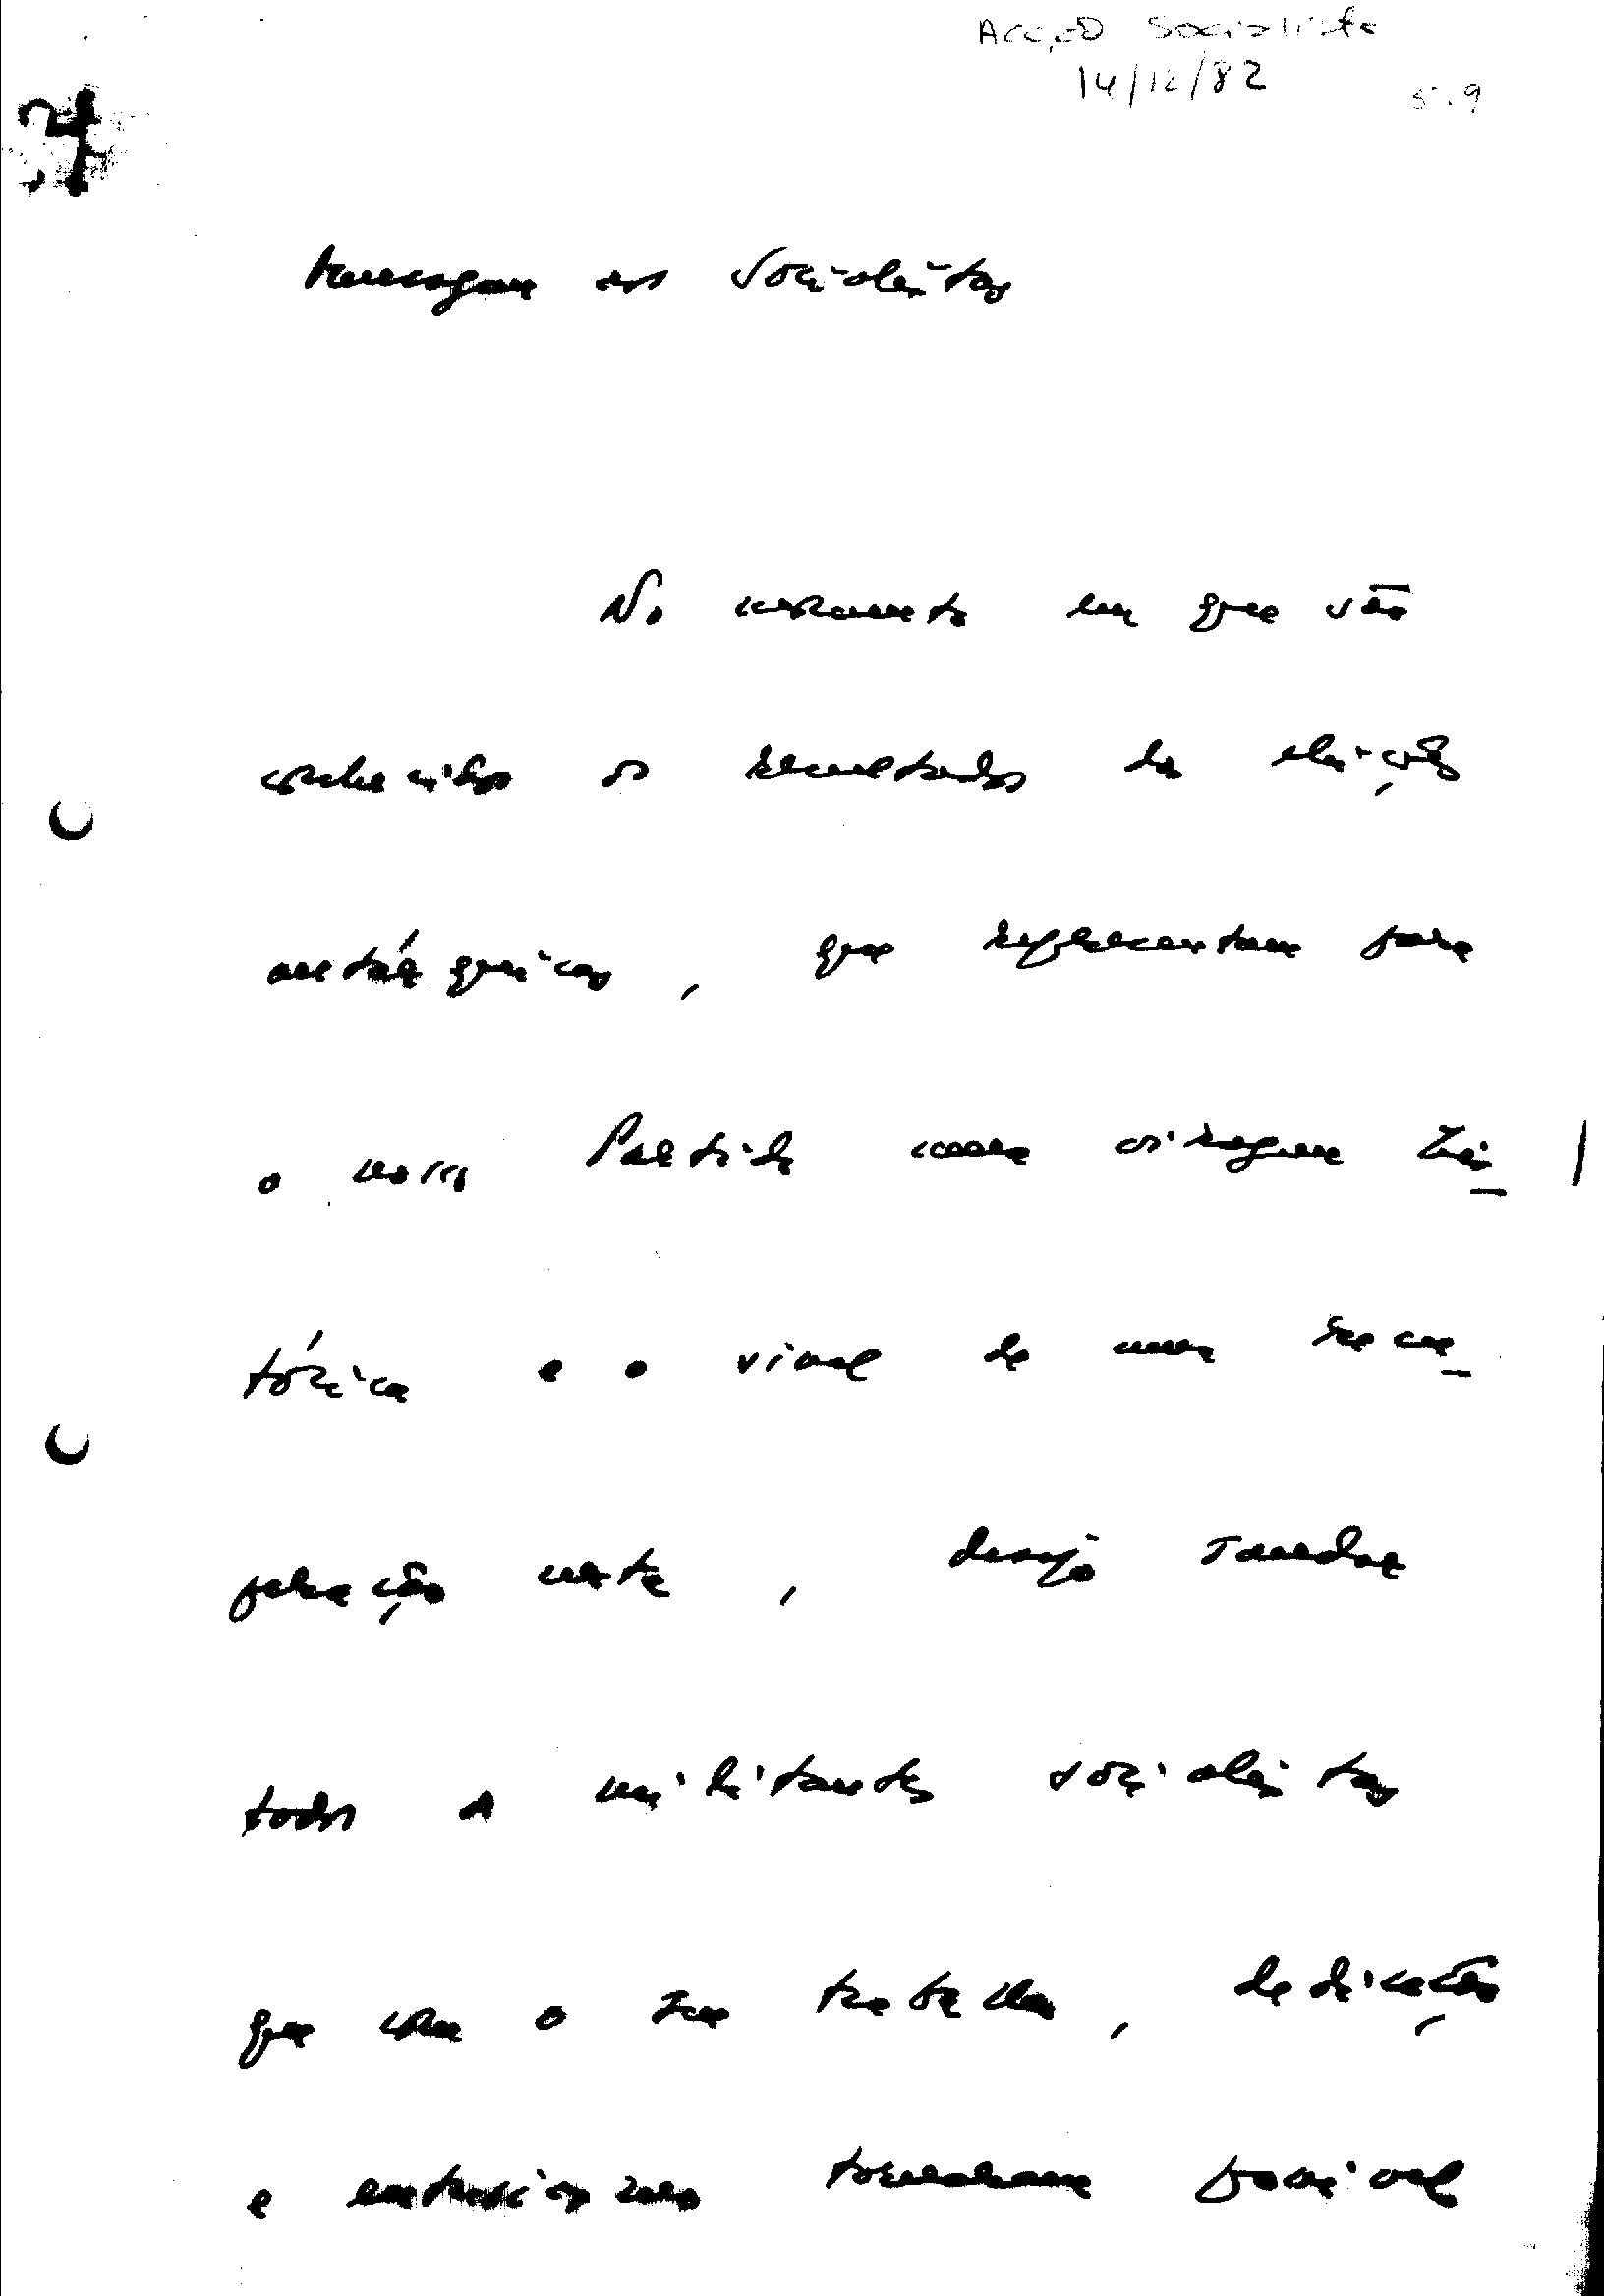 Acção Socialista
14/12/82
5.9
Mensagem aos Socialistas
No momento em que são
conhecidos os resultados das eleições
autárquicas, que representam para
o nosso Partido uma vitória his-
tórica e o sinal de uma recu-
peração certa, desejo saudar
todos os militantes socialistas
que com o seu trabalho, dedicação
e entusiasmo tornaram possível